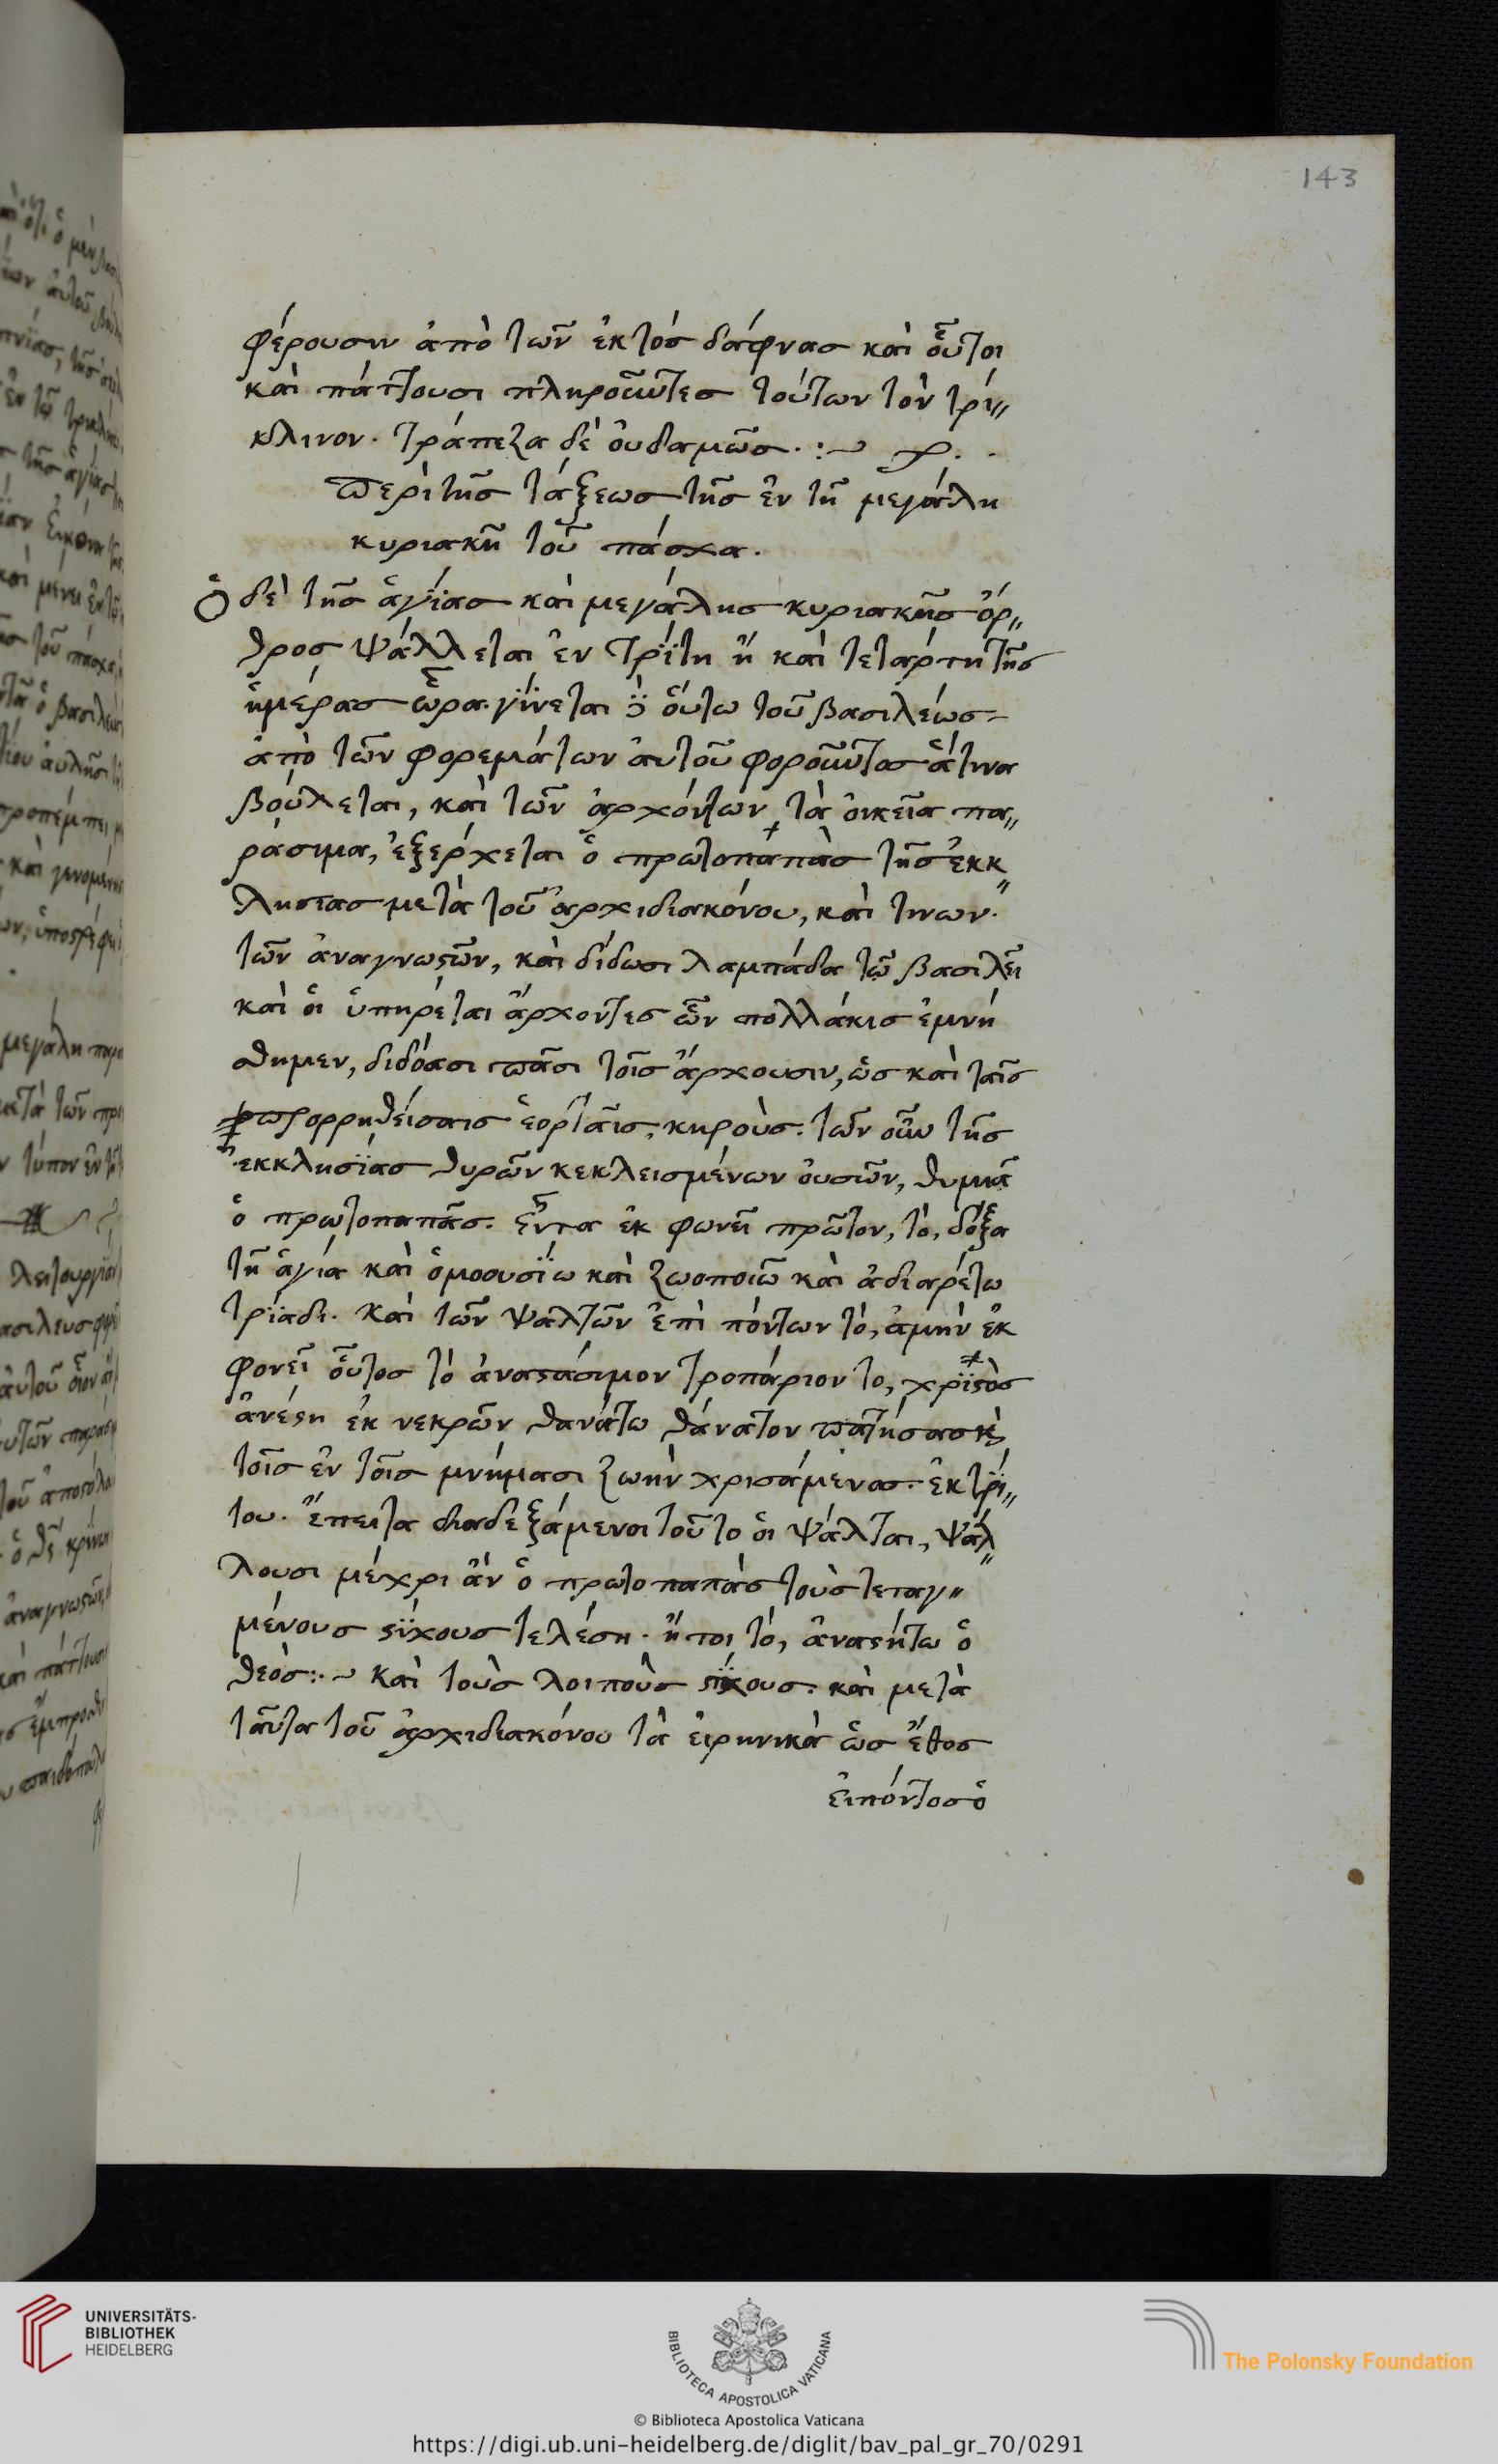 143
φέρουσιν ἀπὸ τῶν ἐκτόσ δάφνασ καὶ οὗτοι
καὶ πάττουσι πληροῦντεσ τούτων τὸν τρί„
κλινον. τράπεζα δὲ οὐδαμῶσ. :~
περὶ τῆσ τάξεωσ τῆσ ἐν τῆ μεγάλη
κυριακῆ τοῦ πάσχα.
Ὁ δὲ τῆσ ἁγίασ καὶ μεγάλησ κυριακῆσ ὄρ„
θροσ ψάλλεται ἐν τρίτη ἢ καὶ τετάρτη τῆσ
ἡμέρασ ὥρα. γίνεται οὕτω τοῦ βασιλέωσ
ἀπὸ τῶν φορεμάτων αὐτοῦ φοροῦντοσ ἅτινα
βούλεται, καὶ τῶν ἀρχόντων τὰ οἰκεῖα πα„
ράσιμα, ἐξέρχεται ὁ πρωτοπαπὰσ τῆσ ἐκκ„
λησίασ μετὰ τοῦ ἀρχιδιακόνου, καὶ τινων.
τῶν ἀναγνωστῶν, καὶ δίδωσι λαμπάδα τῶ βασιλεῖ
καὶ οἱ ὑπηρέται ἄρχοντεσ ὧν πολλάκισ ἐμνή
σθημεν, διδόασι πᾶσι τοῖσ ἄρχουσιν, ὡσ καὶ ταῖσ
ἑορταῖσ, κηροὺσ. τῶν οὖν τῆσ
ἐκκλησίασ θυρῶν κεκλεισμένων οὐσῶν, θυμιᾶ
ὁ πρωτοπαπᾶσ. εἶτα ἐκ φωνεῖ πρῶτον, τὸ, δόξα
τῆ ἁγία καὶ ὁμοουσίω καὶ ζωοποιῶ καὶ ἀδιαρέτω
τριάδι. καὶ τῶν ψαλτῶν ἐπὶ πόντων τὸ, ἀμὴν ἐκ
φονεῖ οὗτοσ τὸ ἀναστάσιμον τροπάριον το, χριστὸσ
ἀνέστη ἐκ νεκρῶν θανάτω θάνατον πατήσασ καὶ
τοῖσ ἐν τοῖσ μνήμασι ζωὴν χρισάμενοσ. ἐκ τρί„
του. ἔπειτα διαδεξάμενοι τοῦτο οἱ ψάλται, ψάλ„
λουσι μέχρι ἂν ὁ πρωτοπαπὰσ τοὺσ τεταγ„
μένουσ στίχουσ τελέση. ἤτοι τό, ἀναστήτω ὁ
θεόσ:~ καὶ τοὺσ λοιποὺσ στίχουσ. καὶ μετὰ
ταῦτα τοῦ ἀρχιδιακόνου τὰ εἰρηνικὰ ὡσ ἔθοσ
εἰπόντοσ ὁ
UNIVERSITÄTS-
BIBLIOTHEK
HEIDELBERG
BIBLIOTECA APOSTOLICA VATICANA
© Biblioteca Apostolica Vaticana
The Polonsky Foundation
https://digi.ub.uni-heidelberg.de/diglit/bav_pal_gr_70/0291